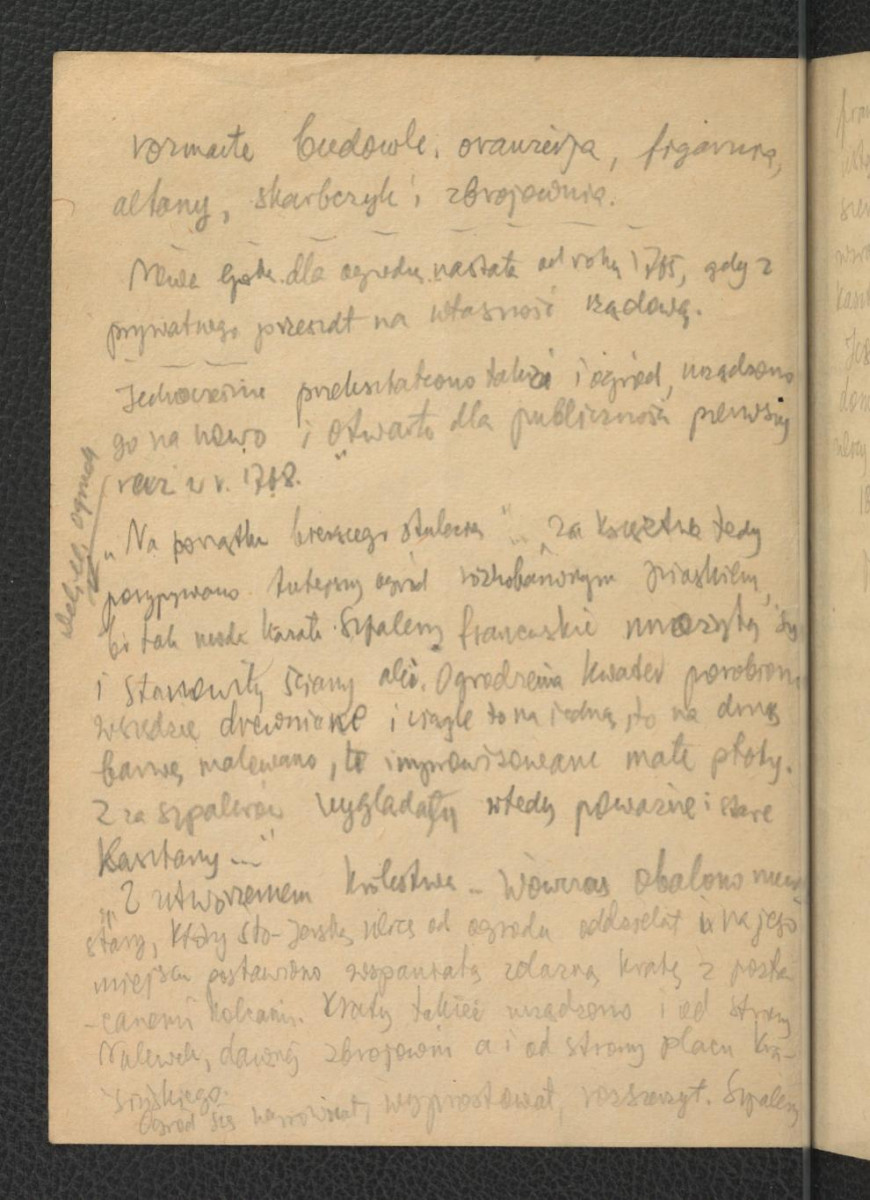 rozmaite budowle: oranżerja, figarnia,
altany, skarbczyk i zbrojownia.
Nowa epoka dla ogrodu nastała od roku 1765, gdy z
prywatnego przeszedł na własność rządową.
Jednocześnie przekształcono także i ogród, urządzono
go na nowo i otwarto dla publiczności pierwszy
raz w r. 1768.
„Na początku bieżącego stulecia" ... „za księstwa tedy
posypywano tutejszy ogród piaskiem,
bo tak moda kazała. Szpalery francuskie mnożyły się
i stanowiły ściany alei. Ogrodzenia kwater porobiono
wszędzie drewniane i ciągle to na jedną, to na drugą
barwę malowano, te improwizowane małe płoty.
Z za szpalerów wyglądały wtedy poważne i stare
kasztany ..."
„Z utworzeniem królestwa – wówczas obalono mur
stary, który Śto-Jerską ulicę od ogrodu oddzielał i na jego
miejscu postawiono wspaniałą żelazną kratę z pozła-
-canemi kolcami. Kraty takież urządzono i od strony
Nalewek, dawnej zbrojowni a i od strony placu Kra-
sińskiego.
Ogród się wyprostował, rozszerzył. Szpalery